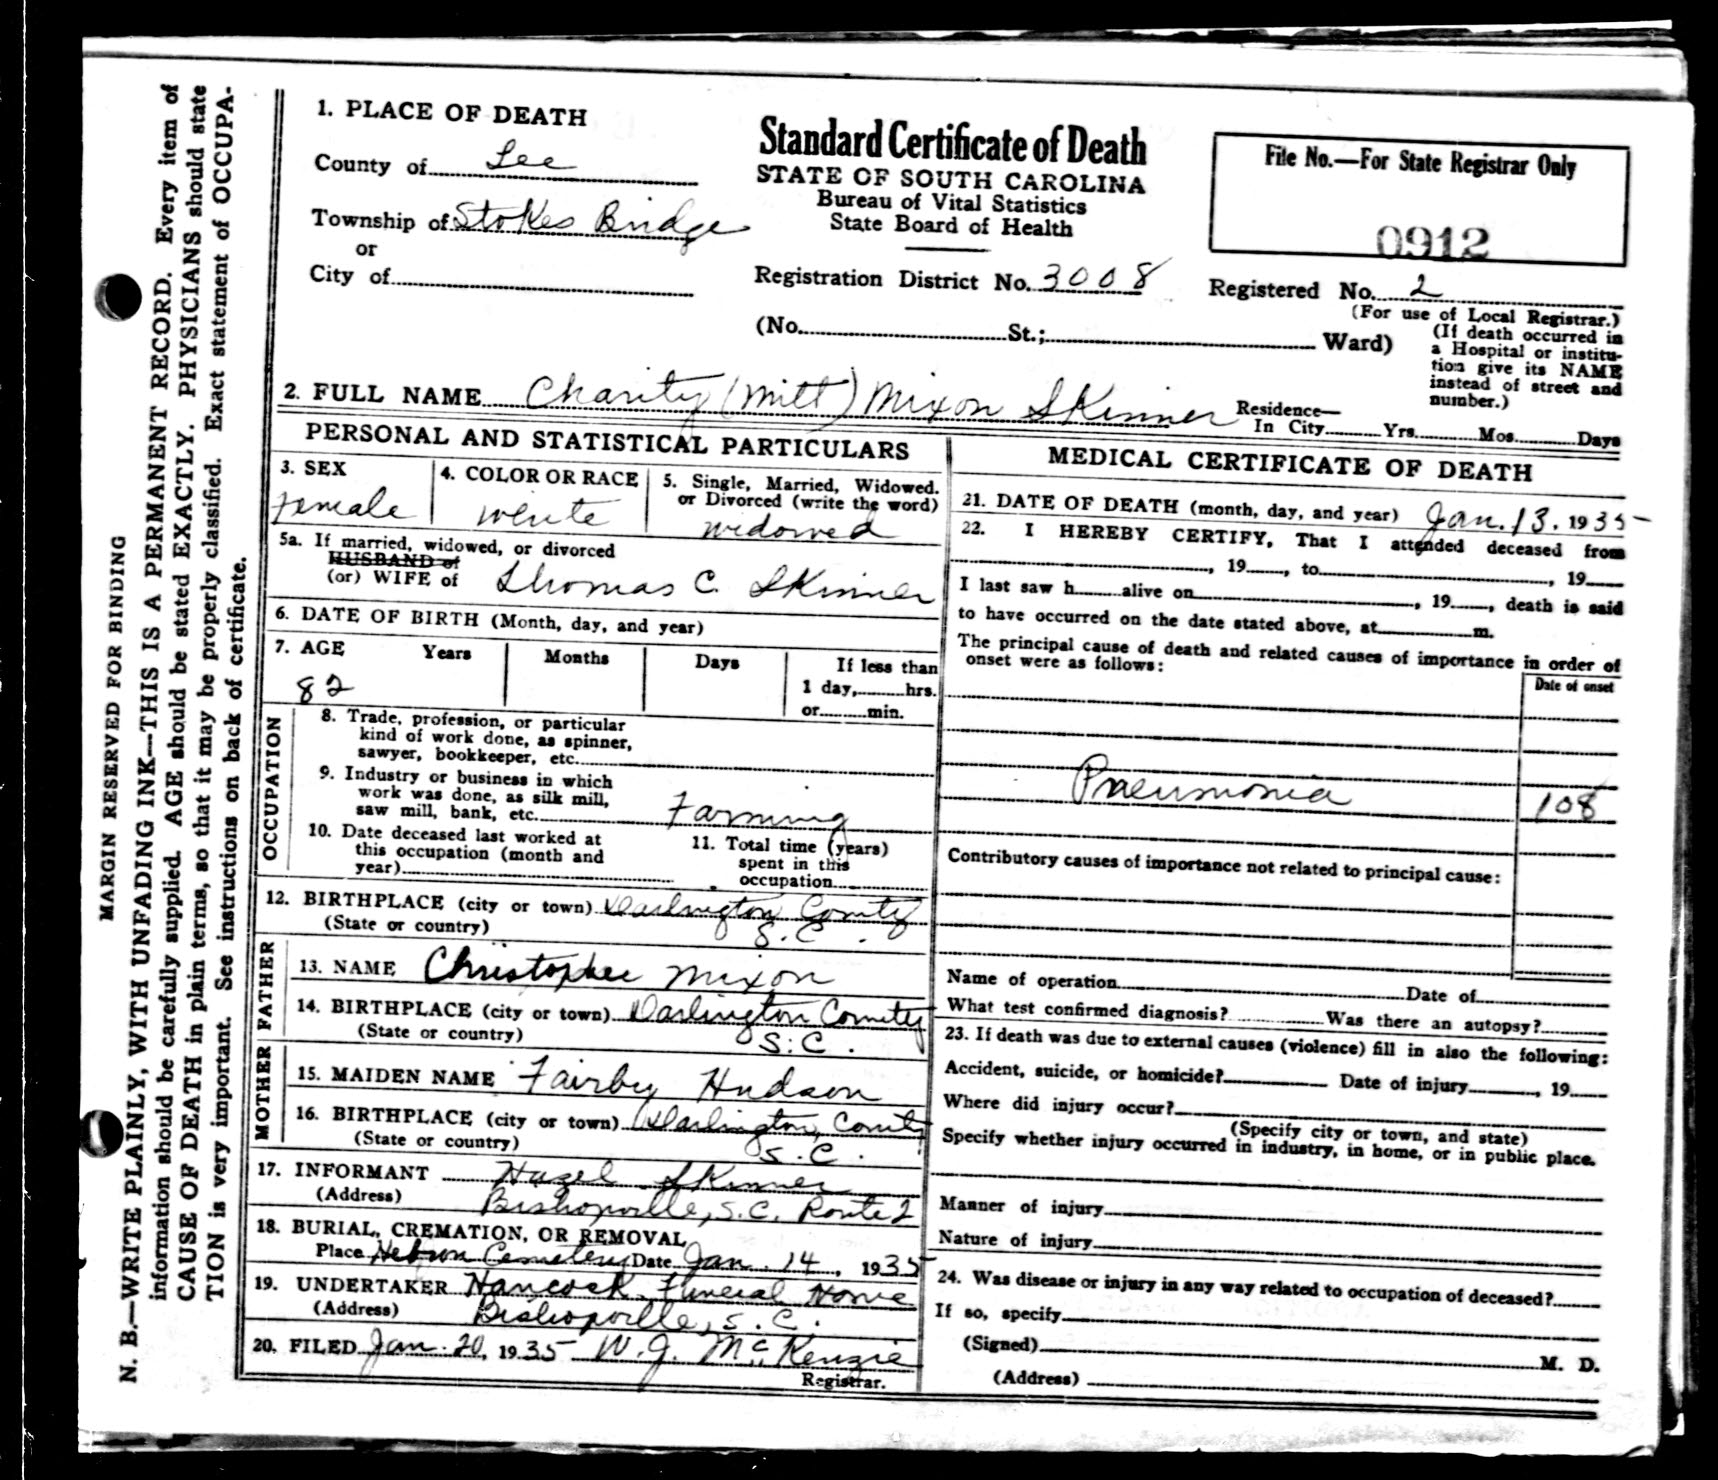 MARGIN RESERVED FOR BINDING
N. B.—WRITE PLAINLY, WITH UNFADING INK—THIS IS A PERMANENT RECORD. Every item of
information should be carefully supplied. AGE should be stated EXACTLY. PHYSICIANS should state
CAUSE OF DEATH in plain terms, so that it may be properly classified. Exact statement of OCCUPA-
TION is very important. See instructions on back of certificate.
1. PLACE OF DEATH
County of Lee
Township of Stokes Bridge
or
City of
Standard Certificate of Death
STATE OF SOUTH CAROLINA
Bureau of Vital Statistics
State Board of Health
Registration District No. 3008
(No. St.; Ward)
File No.—For State Registrar Only
0912
Registered No. 2
(For use of Local Registrar.)
(If death occurred in
a Hospital or institu-
tion give its NAME
instead of street and
number.)
2. FULL NAME Charity (Mitt) Mixon Skinner
Residence—
In City Yrs. Mos. Days
PERSONAL AND STATISTICAL PARTICULARS
3. SEX
female
4. COLOR OR RACE
white
5. Single, Married, Widowed.
or Divorced (write the word)
widowed
5a. If married, widowed, or divorced
HUSBAND of
(or) WIFE of Thomas C. Skinner
6. DATE OF BIRTH (Month, day, and year)
7. AGE Years Months Days If less than
82 1 day, hrs.
or min.
OCCUPATION
8. Trade, profession, or particular
kind of work done, as spinner,
sawyer, bookkeeper, etc.
9. Industry or business in which
work was done, as silk mill,
saw mill, bank, etc. Farming
10. Date deceased last worked at
this occupation (month and
year)
11. Total time (years)
spent in this
occupation
12. BIRTHPLACE (city or town) Darlington County
(State or country) S.C.
FATHER
13. NAME Christopher Mixon
14. BIRTHPLACE (city or town) Darlington County
(State or country) S.C.
MOTHER
15. MAIDEN NAME Fairby Hudson
16. BIRTHPLACE (city or town) Darlington, County
(State or country) S.C.
17. INFORMANT Hazel Skinner
(Address) Bishopville, S.C. Route 2
18. BURIAL, CREMATION, OR REMOVAL
Place Hebron Cemetery Date Jan. 14, 1935
19. UNDERTAKER Hancock Funeral Home
(Address) Bishopville, S.C.
20. FILED Jan. 20, 1935 W. J. McKenzie
Registrar.
MEDICAL CERTIFICATE OF DEATH
21. DATE OF DEATH (month, day, and year) Jan. 13, 1935
22. I HEREBY CERTIFY, That I attended deceased from
, 19 , to , 19
I last saw h alive on , 19 , death is said
to have occurred on the date stated above, at m.
The principal cause of death and related causes of importance in order of
onset were as follows:
Date of onset
Pneumonia 108
Contributory causes of importance not related to principal cause:
Name of operation Date of
What test confirmed diagnosis? Was there an autopsy?
23. If death was due to external causes (violence) fill in also the following:
Accident, suicide, or homicide? Date of injury , 19
Where did injury occur?
(Specify city or town, and state)
Specify whether injury occurred in industry, in home, or in public place.
Manner of injury
Nature of injury
24. Was disease or injury in any way related to occupation of deceased?
If so, specify
(Signed) M. D.
(Address)